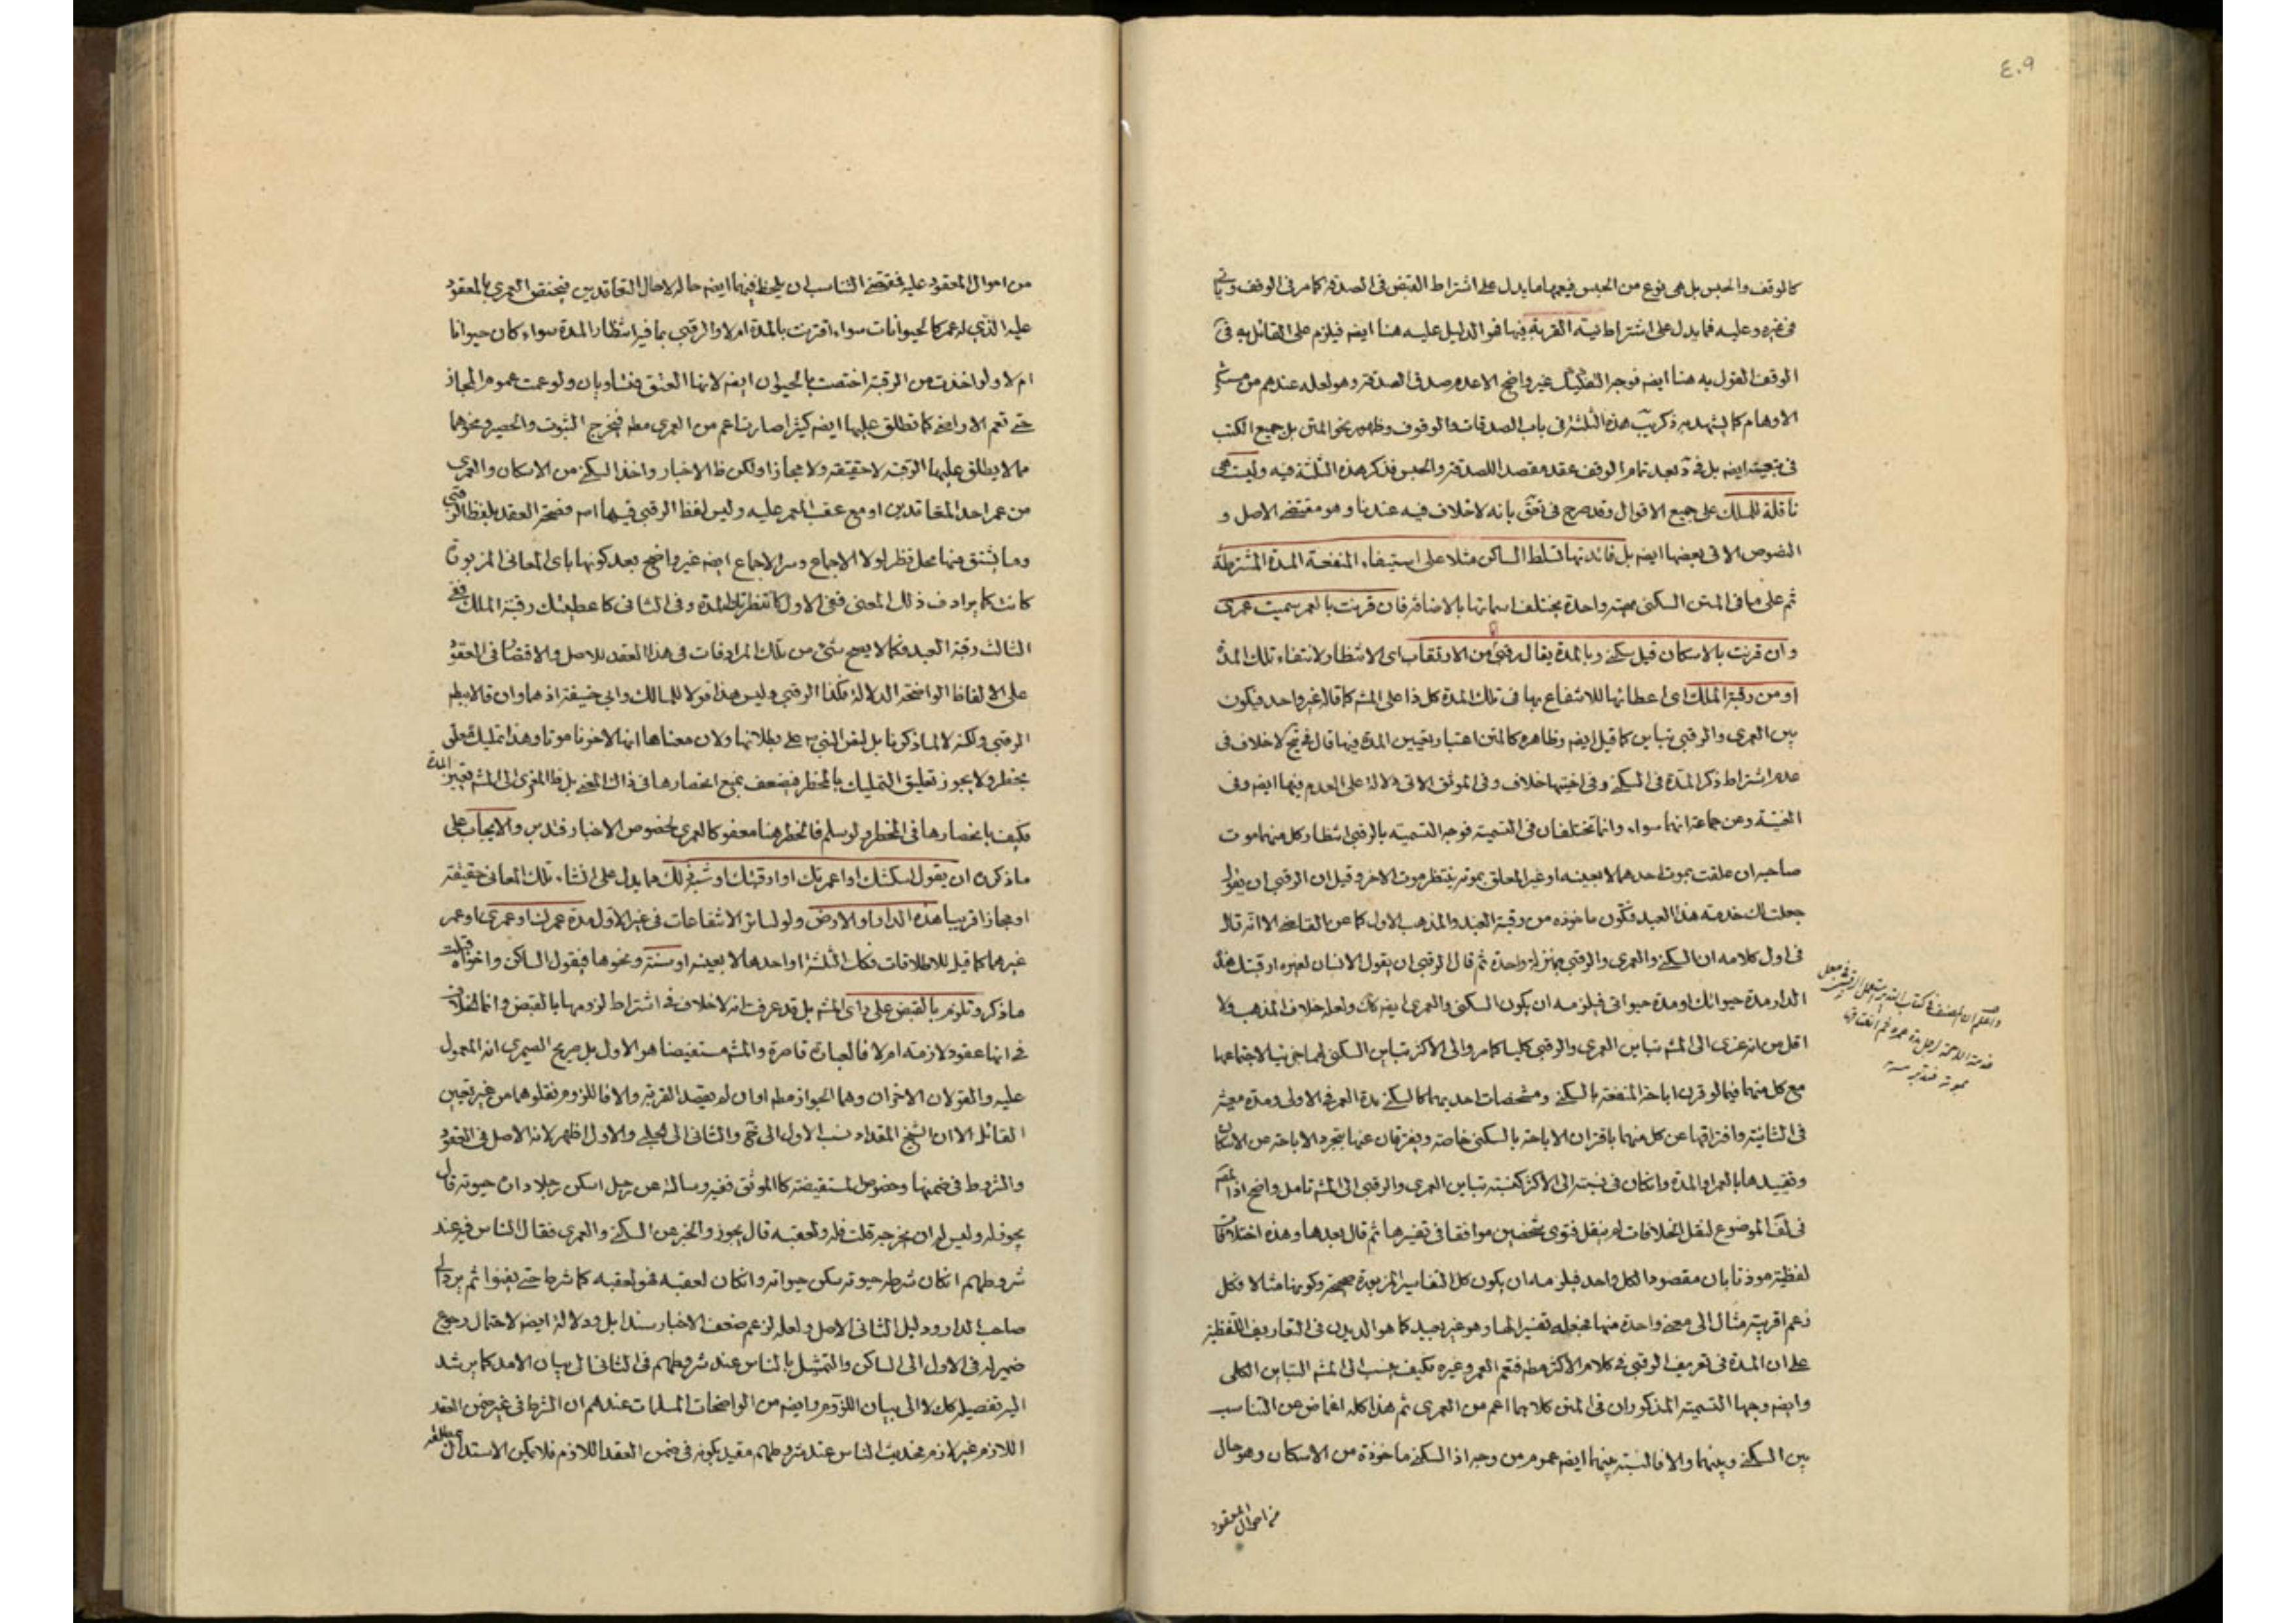 ٤٠٩
كالوقف والحبس بل هي نوع من الحبس فيعمها ما يدل على اشتراط القبض في الصدقة كما مر في الوقف وياتى
في غيره وعليه فما يدل على اشتراط نية القربة فيها فهو الدليل عليه هنا ايضه فيلزم على القائل به في
الوقف القول به هنا ايضه فوجه التفكيك غير واضح الا عدم صدق الصدقة وهو لعله عندهم من
الاوهام كما يشهد به ذكر هذه الثلثة في باب الصدقات والوقوف وظاهر نحو المتن بل جميع الكتب
في ايضه بل في بعد تمام الوقف عقد مقصد اللصدقة والحبس فذكر هذه الثلثة فيه وليست هي
ناقلة للملك على جميع الاقوال وقد صرح في بانه لا خلاف فيه عندنا وهو مقتضى الاصل و
النصوص الاتى بعضها ايضه بل فائدتها تسلط الساكن مثلا على استيفاء المنفعة المدة المشترطة
ثم على ما في المتن السكنى مهية واحدة يختلف اسمائها بالاضافة فان قرنت بالعمر سميت عمرى
وان قرنت بالاسكان قيل سكنى وبالمدة يقال رقبى من الارتقاب اى الانتظار لانتفاء تلك المدة
او من رقبة الملك اى اعطائها للانتفاع بها في تلك المدة كل ذا على المشه كما قاله غير واحد فيكون
بين العمرى والرقبى تباين كما قيل ايضه وظاهره كالمتن اعتبار تعيين المدة فيها قال في لا خلاف في
عدم اشتراط ذكر المدة في السكنى وفي اختيها خلاف وفي الموثق الاتى دلالة على العدم فيهما ايضه وفي
الغنية وعن جماعة انهما سواء وانما تختلفان في التسمية فوجه التسمية بالرقبى انتظار كل منهما موت
صاحبه ان علقت بموت احدهما لا بعينه او غير المعلق بموته ينتظر موت الاخر وقيل ان الرقبى ان يقول
جعلت لك خدمة هذا العبد فتكون ماخوذه من رقبة العبد والمذهب الاول كما عن القاضى الا انه قال
في اول كلامه ان السكنى والعمرى والرقبى بمنزلة واحدة ثم قال الرقبى ان يقول الانسان لغيره ارقبتك هذه
الدار مدة حيوتك او مدة حيوتى فيلزمه ان يكون السكنى والعمرى ايضه كك ولعله خلاف المذهب ولا
اقل من انه عزى الى المشه تباين العمرى والرقبى كليا كما مر والى الاكثر تباين السكنى لهما جزئيا لاجتماعها
مع كل منهما فيما لو قرن اباحة المنفعة بالسكنى ومشخصات احديهما كالسكنى مدة العمر في الاولى ومدة معينه
في الثانية وافتراقها عن كل منهما باقتران الاباحة بالسكنى خاصة ويفترقان عنها بتجرد الاباحة عن الاسكان
وتقييدها بالعمر او المدة وان كان في نسبته الى الاكثر كنسبة تباين العمرى والرقبى الى المشه تامل واضح اذا
الموضوع لنقل الخلافات لم ينقل فتوى شخصين موافقا في تفسيرها ثم قال بعدها وهذه اختلافات
لفظية موذنا بان مقصود الكل واحد فيلزمه ان يكون كل التفاسير المزبورة صحيحة وكونها مثالا فكل
زعم اقربية مثال الى معنى واحدة منها فجعله تفسيرا لها وهو غير بعيد كما هو الديدن في التعاريف اللفظية
على ان المدة في تعريف الرقبى في كلام الاكثر مطه فتعم العمر وغيره فكيف ينسب الى المشه التباين الكلى
وايضه وجها التسمية المذكوران في المتن كلاهما اعم من العمرى ثم هذا كله اغماض عن التناسب
بين السكنى وبينهما والا فالنسبة بينهما ايضه عموم من وجه اذ السكنى ماخوذة من الاسكان وهو حال
من احوال المعقود
من احوال المعقود عليه فمقتضى التناسب ان يلحظ فيهما ايضه حاله لا حال المتعاقدين فيختص العمرى بالمعقود
عليه الذى له عمر كالحيوانات سواء اقترنت بالمدة ام لا والرقبى بما فيه انتظار المدة سواء كان حيوانا
ام لا ولو اخذت من الرقبة اختصت بالحيوان ايضه لانها العنق فتساويان ولو عمت عموم المجاز
حتى تعم الاراضى كما تطلق عليها ايضه كثيرا صارت اعم من العمرى مطه فيخرج الثبوت والحصير ونحوهما
مما لا يطلق عليها الرقبة لا حقيقة ولا مجازا ولكن ظ الاخبار واخذ السكنى من الاسكان والعمرى
من عمر احد المتعاقدين او مع عقب المعمر عليه وليس لفظ الرقبى فيها اسم فصحة العقد بلفظ الرقبى
وما يشتق منها محل نظر لولا الاجماع وسر الاجماع ايضه غير واضح بعد كونها باى المعانى المزبورة
كانت كما يرادف ذلك المعنى ففى الاول كانتظرتك المدة وفي الثانى كاعطيتك رقبة الملك وفي
الثالث رقبة العبد فكما لا يصح بشئ من تلك المرادفات في هذا العقد للاصل والاقتصار في العقود
على الالفاظ الواضحة الدلالة فكذا الرقبى وليس هذا قولا للمالك وابي حنيفة اذ هما وان قالا ببطلان
الرقبى ولكنه لا لما ذكرنا بل لنص النبى ص على بطلانها ولان معناها انها لاخرنا موتا وهذا تمليك معلق
بخطر ولا يجوز تعليق التمليك بالخطر فيضعف بمنع انحصارها في ذاك المعنى بل ظ المعزى الى المشه تعيين المدة
فكيف بانحصارها في الخطر ولو سلم فالخطر هنا معفو كالعمرى لخصوص الاخبار فتدبر والايجاب على
ما ذكره ان يقول اسكنتك او اعمرتك او ارقبتك او شبه ذلك مما يدل على انشاء تلك المعانى حقيقة
او مجازا قريبا هذه الدار او الارض ولو لسائر الانتفاعات في غير الاول مدة عمرك او عمرى او عمر
غيرهما كما قيل للاطلاقات فكك الثلثة او احدهما لا بعينه او سنة ونحوها فيقول الساكن واخواه قبلت
ما ذكر وتلزم بالقبض على راى المشه بل قد عرفت انه لا خلاف في اشتراط لزومها بالقبض وانما الخلاف
في انها عقود لازمة ام لا فالعبارة قاصرة والمشه مستفيضا هو الاول بل صريح الصيمرى انه المعمول
عليه والقولان الاخران وهما الجواز مطه او ان لم يقصد القربة والا فاللزوم نقلوهما من غير تعيين
القائل الا ان الشيخ المقداد نسب الاول الى والثانى الى الحلبى والاول اظهر لانه الاصل في العقود
والشروط في ضمنها وخصوص المستفيضة كالموثق ففيه وسالته عن رجل اسكن رجلا داره حيوته قال
يجوز له وليس له ان يخرجه قلت فله ولعقبه قال يجوز والخبر عن السكنى والعمرى فقال الناس فيه عند
شروطهم ان كان شرطه حيوته سكن حيوته وان كان لعقبه فهو لعقبه كما شرط حتى يفنوا ثم يرد الى
صاحب الدار ودليل الثانى الاصل ولعله لزعم ضعف الاخبار سندا بل ودلالة ايضه لاحتمال رجوع
ضمير له في الاول الى الساكن والتمثيل بالناس عند شروطهم في الثانى الى بيان الامد كما يرشد
اليه تفصيله كك لا الى بيان اللزوم وايضه من الواضحات المسلمات عندهم ان الشرط في غير ضمن العقد
اللازم غير لازم فحديث الناس عند شروطهم مقيد بكونه في ضمن العقد اللازم فلا يمكن الاستدلال